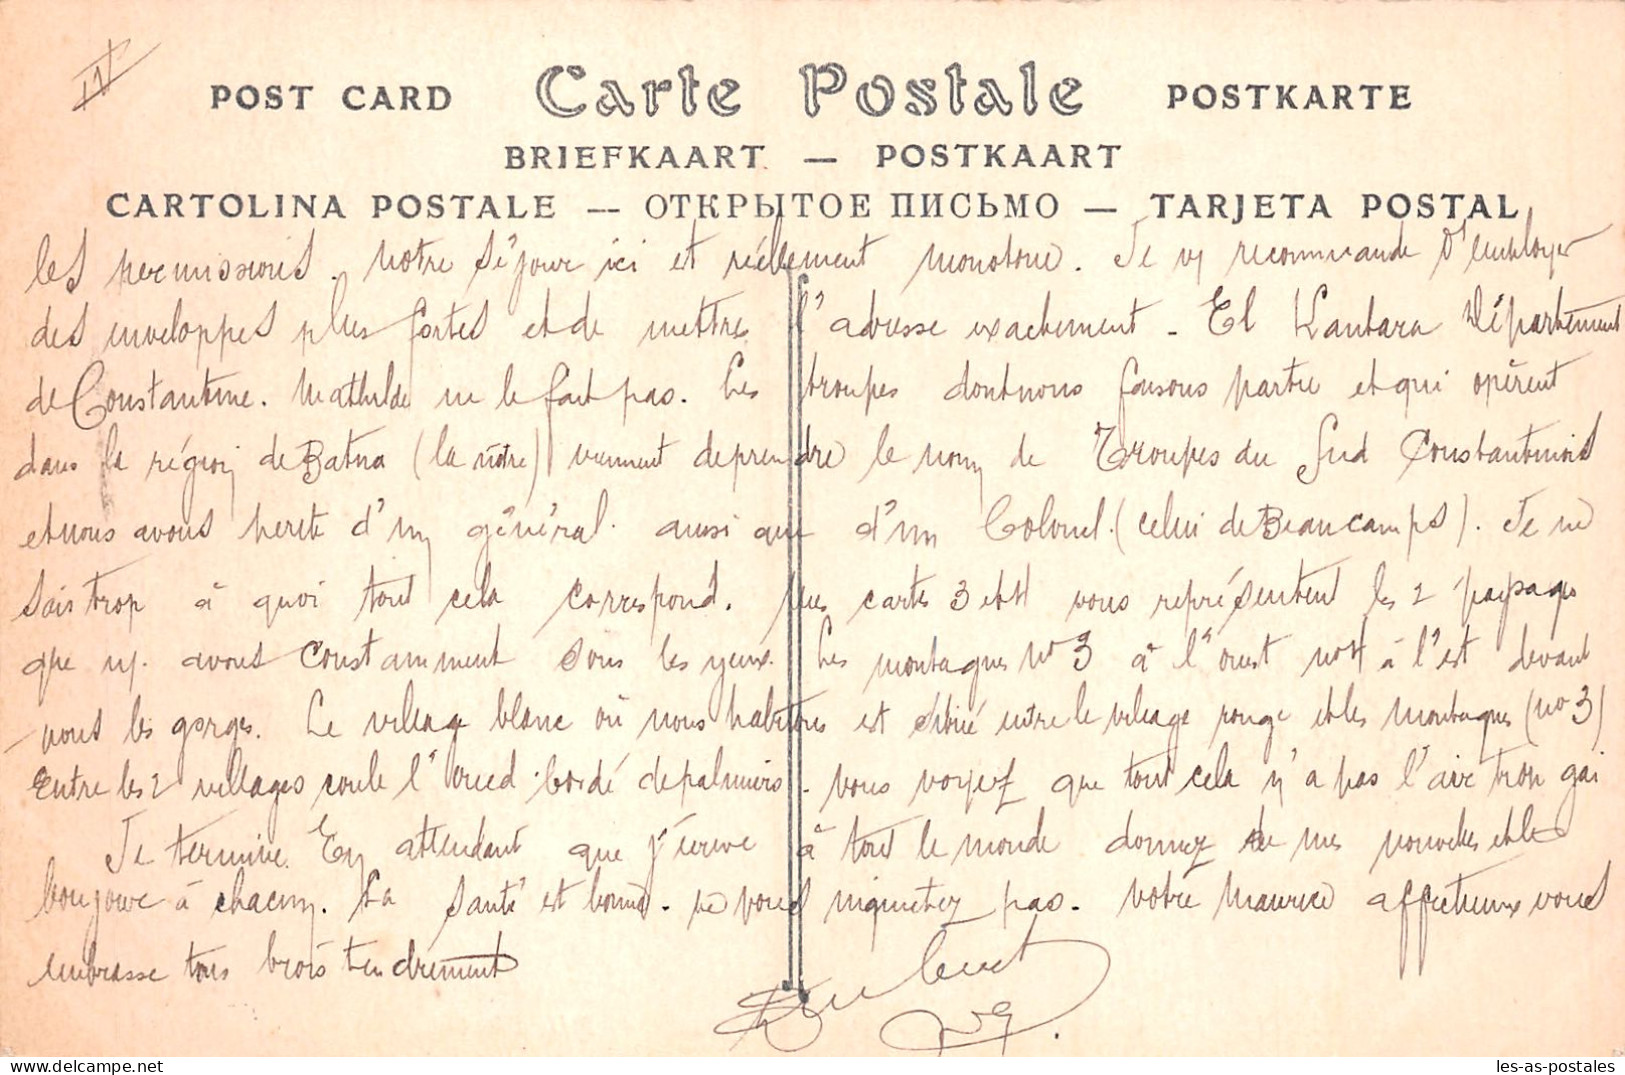 IV
POST CARD Carte Postale POSTKARTE
BRIEFKAART — POSTKAART
CARTOLINA POSTALE — ОТКРЫТОЕ ПИСЬМО — TARJETA POSTAL
les permissions. Notre séjour ici est réellement monotone. Je vs recommande d'employer
des enveloppes plus fortes et de mettre l'adresse exactement - El Kantara Département
de Constantine. Mathilde ne le fait pas. Les troupes dont nous faisons partie et qui opèrent
dans la région de Batna (la nôtre) viennent de prendre le nom de Troupes du Sud Constantinois
et nous avons hérité d'un général aussi que d'un Colonel (celui de Beaucamps). Je ne
sais trop à quoi tout cela correspond. Mes cartes 3 et 4 vous représentent les 2 paysages
que ns avons constamment sous les yeux. Les montagnes no 3 à l'ouest no 4 à l'est devant
nous les gorges. Le village blanc où nous habitons est situé entre le village rouge et les montagnes (no 3)
Entre les 2 villages coule l'oued bordé de palmiers. Vous voyez que tout cela n'a pas l'air trop gai
Je termine. En attendant que j'écrive à tout le monde donnez de mes nouvelles et le
bonjour à chacun. La santé est bonne. Ne vous inquietez pas. Votre Maurice affectueux vous
embrasse tous trois tendrement